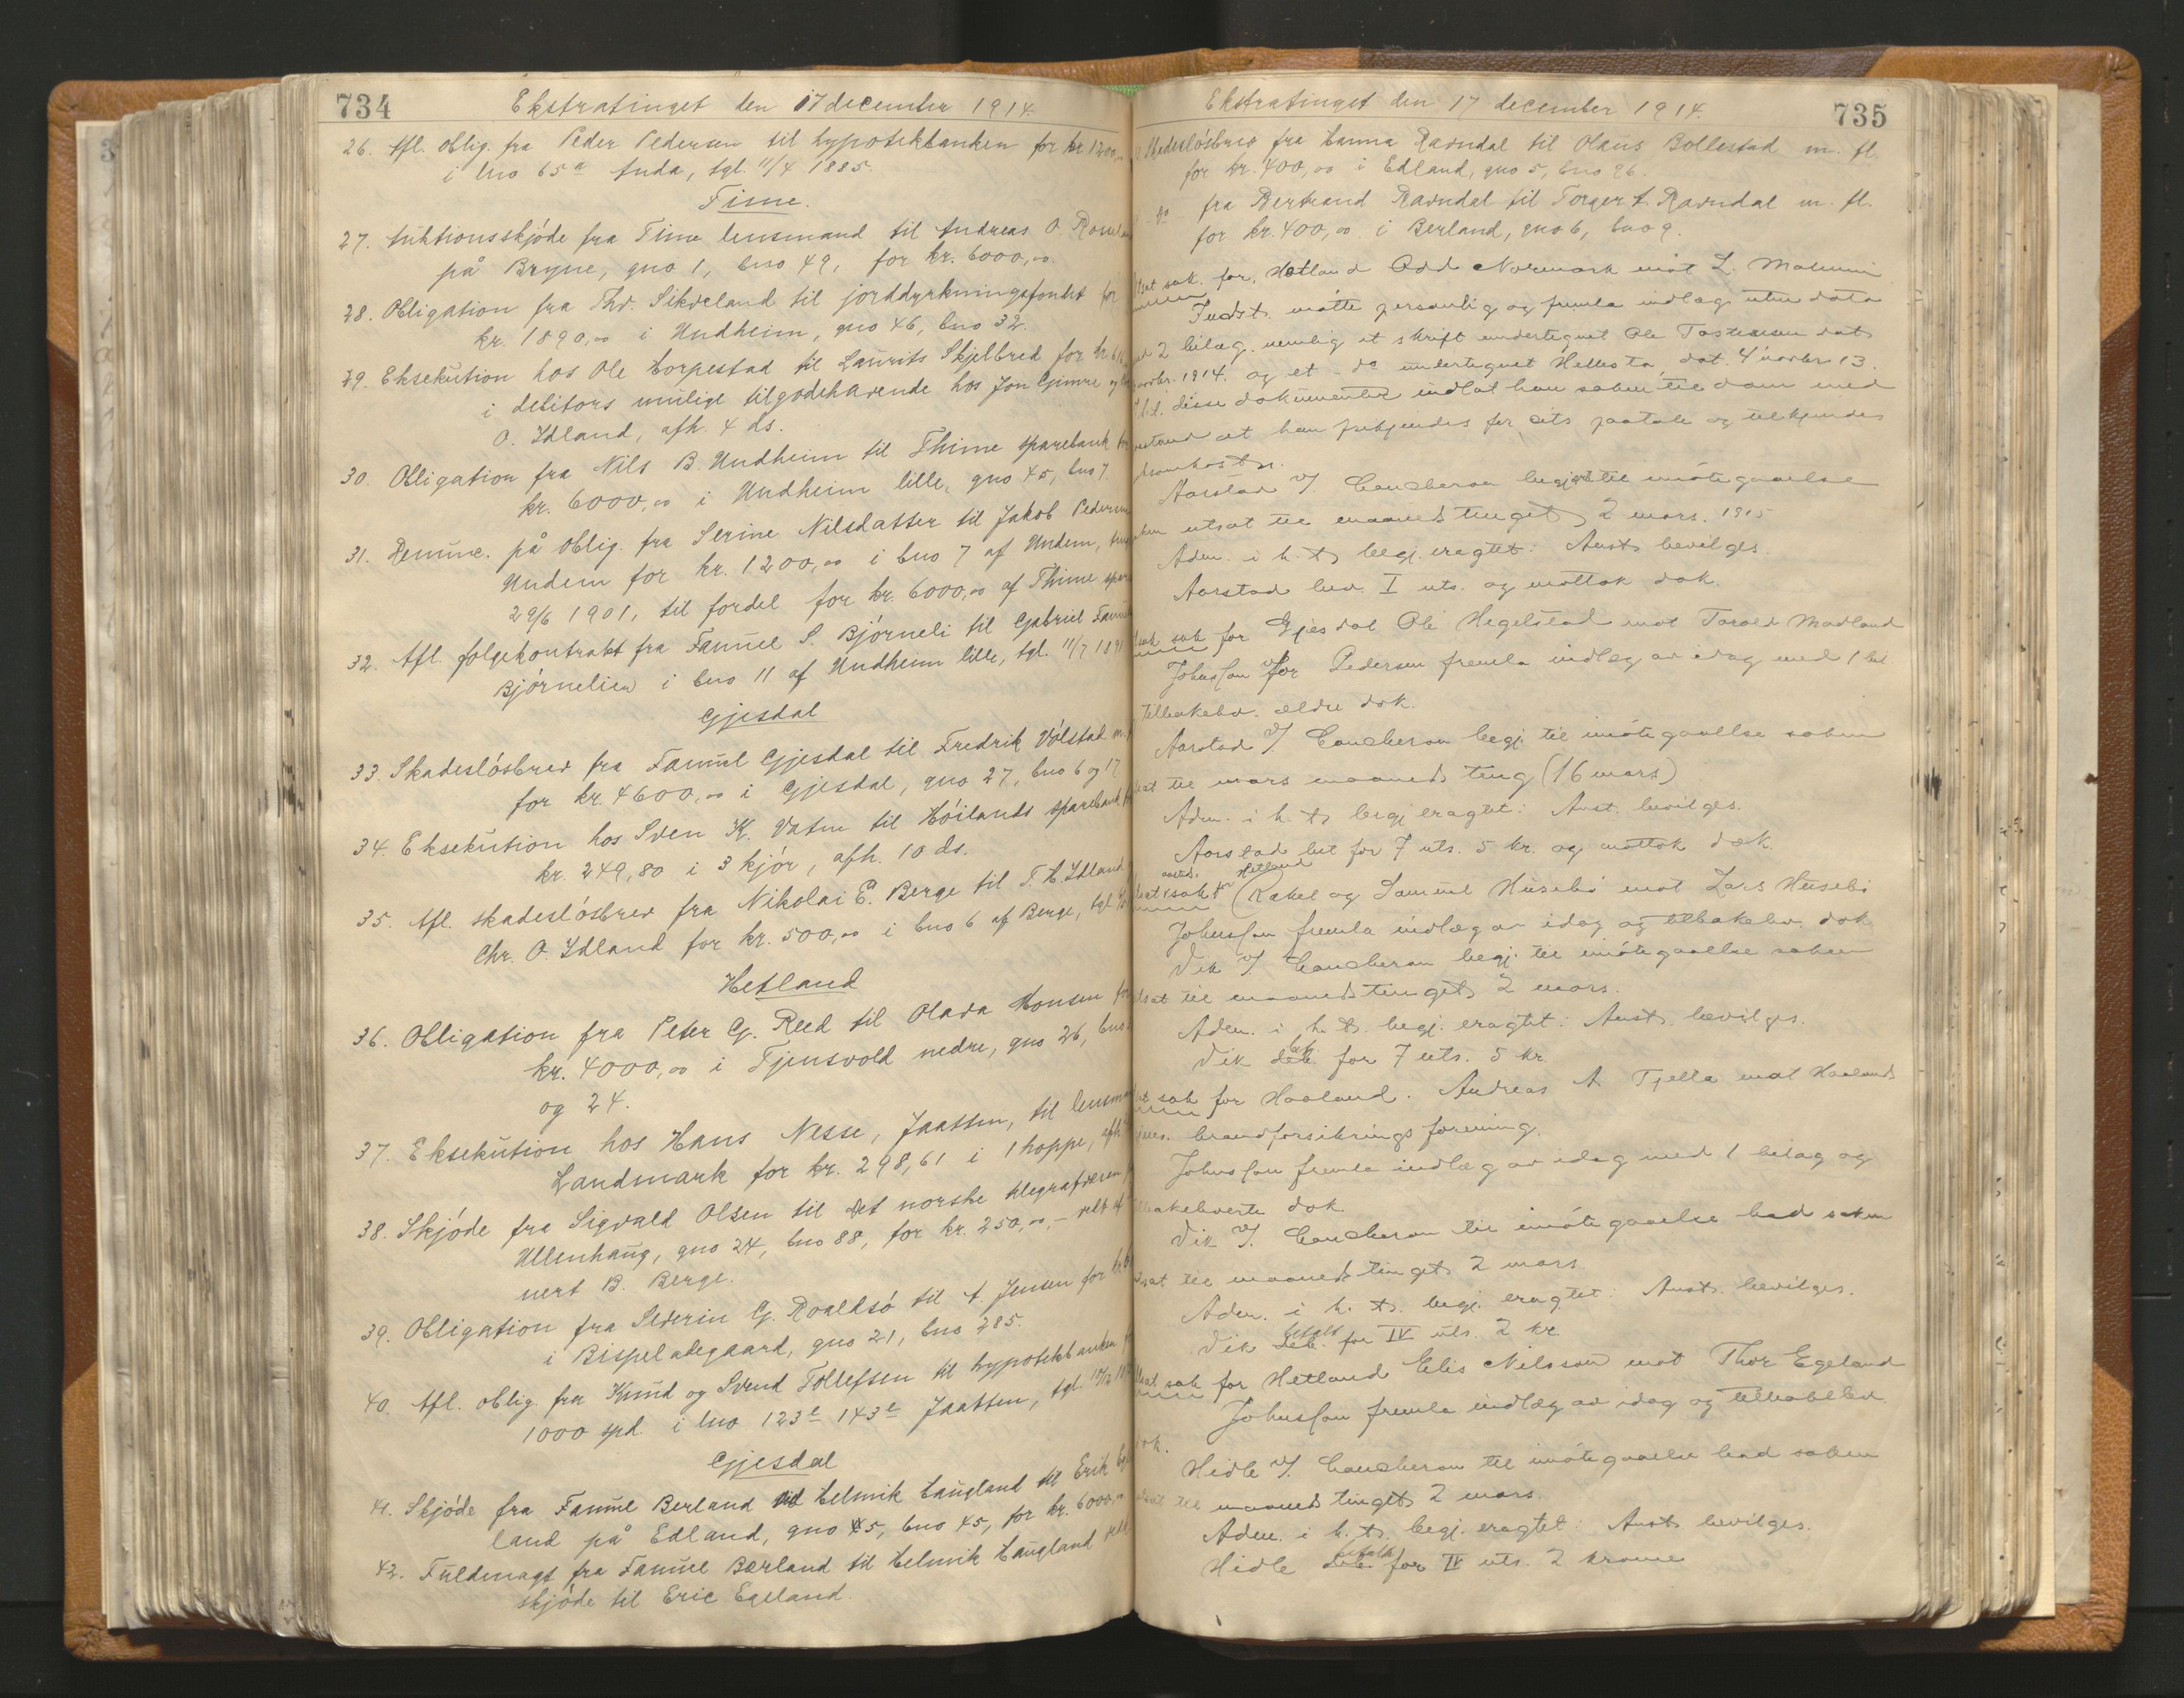 734
Ekstratinget den 17 december 1914.
26. Afl. oblig. fra Peder Pedersen til hypotekbanken for kr. 1200,00
i bno 65a Auda, tgl. 11/4 1885.
Time.
27. Auktionsskjöde fra Time lensmand til Andreas O.
på Bryne, gno 1, bno 49, for kr. 6000,00.
28. Obligation fra Thv. Sikveland til jorddyrkningsfondet for
kr. 1890,00 i Undheim, gno 46, bno 32.
29. Eksekution hos Ole Horpestad til Laurits Skjelbred for kr.
i debitors mulige tilgodehavende hos Jon Gimre og
O. Idland, afh. 4 ds.
30. Obligation fra Nils B. Undheim til Thime sparebank for
kr. 6000,00 i Undheim lille, gno 45, bno 7
31. på oblig. fra Serine Nilsdatter til Jakob Pedersen
Undem for kr. 1200,00 i bno 7 af Undem,
29/6 1901, til fordel for kr. 6000,00 af Thime
32. Afl. folgekontrakt fra Samuel S. Björneli til Gabriel
Björnelien i bno 11 af Undheim lille, tgl. 11/7
Gjesdal
33. Skadeslösbrev fra Samuel Gjesdal til Fredrik Völstad m.
for kr. 4600,00 i Gjesdal, gno 27, bno 6 og 17
34. Eksekution hos Sven K. Vatne til Höilands sparebank
kr. 249,80 i 3 kjör, afh. 10 ds.
35. Afl. skadeslösbrev fra Nikolai E. Berge til T. H. Idland
Chr. O. Idland for kr. 500,00 i bno 6 af Berge, tgl.
Hetland
36. Obligation fra Peter G. Reed til Olava Monsen for
kr. 4000,00 i Tjensvold nedre, gno 26, bno
og 24.
37. Eksekution hos Hans Nesse, Jaatten, til
Landmark for kr. 298,61 i 1 hoppe, afh.
38. Skjöde fra Sigvald Olsen til det norske telegrafvæsen
Ullenhaug, gno 24, bno 88, for kr. 250,00, –
nert B. Berge.
39. Obligation fra Severin G. Roaldsö til A. Jensen for
i Bispeladegaard, gno 21, bno 285.
40. Afl. oblig. fra Knud og Svend Tollefsen til hypotekbanken
1000 spd. i bno 123e 143e Jaatten, tgl.
Gjesdal
41. Skjöde fra Samuel Berland ved Helmik Haugland til Erik
land på Edland, gno 5, bno 45, for kr. 6000,00
42. Fuldmagt fra Samuel Berland til Helmik Haugland
skjöde til Eric Egeland.
735
Ekstratinget den 17 december 1914.
Skadeslösbrev fra Hanna Ravndal til Olaus Bollestad m. fl.
for kr. 400,00 i Edland, gno 5, bno 96.
do fra Bertrand Ravndal til Torger T. Ravndal m. fl.
for kr. 400,00 i Berland, gno 6, bno 9.
sak for Hetland Odd Normark mot L.
Indst. mötte personlig og fremla indlæg uten data
2 bilag, nemlig et skrift undertegnet Ole
novbr. 1914. og et do undertegnet dat. 4 novbr. 13.
disse dokumenter indlot han saken til dom med
at han frikjendes for paatale og tilkjendes
Aarstad v/ Caucheron til imötegaaelse
utsat til maanedstinget 2 mars. 1915
Adm. i h. t. begj. eragtet: Anst. bevilges.
Aarstad I uts. og mottok dok.
sak for Gjesdal Ole Hegelstad mot Torald Madland
Johnsson for Pedersen fremla indlæg av idag med 1 bil.
tilbakelev. ældre dok.
Aarstad v/ Caucheron begj. til imötegaaelse saken
til mars maaneds ting (16 mars)
Adm. i h. t. begj. eragtet: Anst. bevilges.
Aarstad bet for 7 uts. 5 kr. og mottok dok.
sak Hetland Rakel og Samuel Husebö mot Lars Husebö
Johnsson fremla indlæg av idag og tilbakelev. dok.
Vik v/ Caucheron begj. til imötegaaelse saken
utsat til maanedstinget 2 mars.
Adm. i h. t. begj. eragtet: Anst. bevilges.
Vik bet. for 7 uts. 5 kr
sak for Haaland. Andreas A. Tjelta mot Haalands
brandforsikringsforening.
Johnsson fremla indlæg av idag med 1 bilag og
tilbakeleverte dok.
Vik v/ Caucheron til imötegaaelse bad saken
utsat til maanedstinget 2 mars
Adm. i h. t. begj. eragtet: Anst. bevilges.
Vik betalt for IV uts. 2 kr
sak for Hetland Elis Nilsson mot Thor Egeland
Johnsson fremla indlæg av idag og tilbakelev.
dok.
Hidle v/ Caucheron til imötegaaelse bad saken
utsat til maanedstinget 2 mars.
Adm. i h. t. begj. eragtet: Anst. bevilges.
Hidle betalt for IV uts. 2 krone